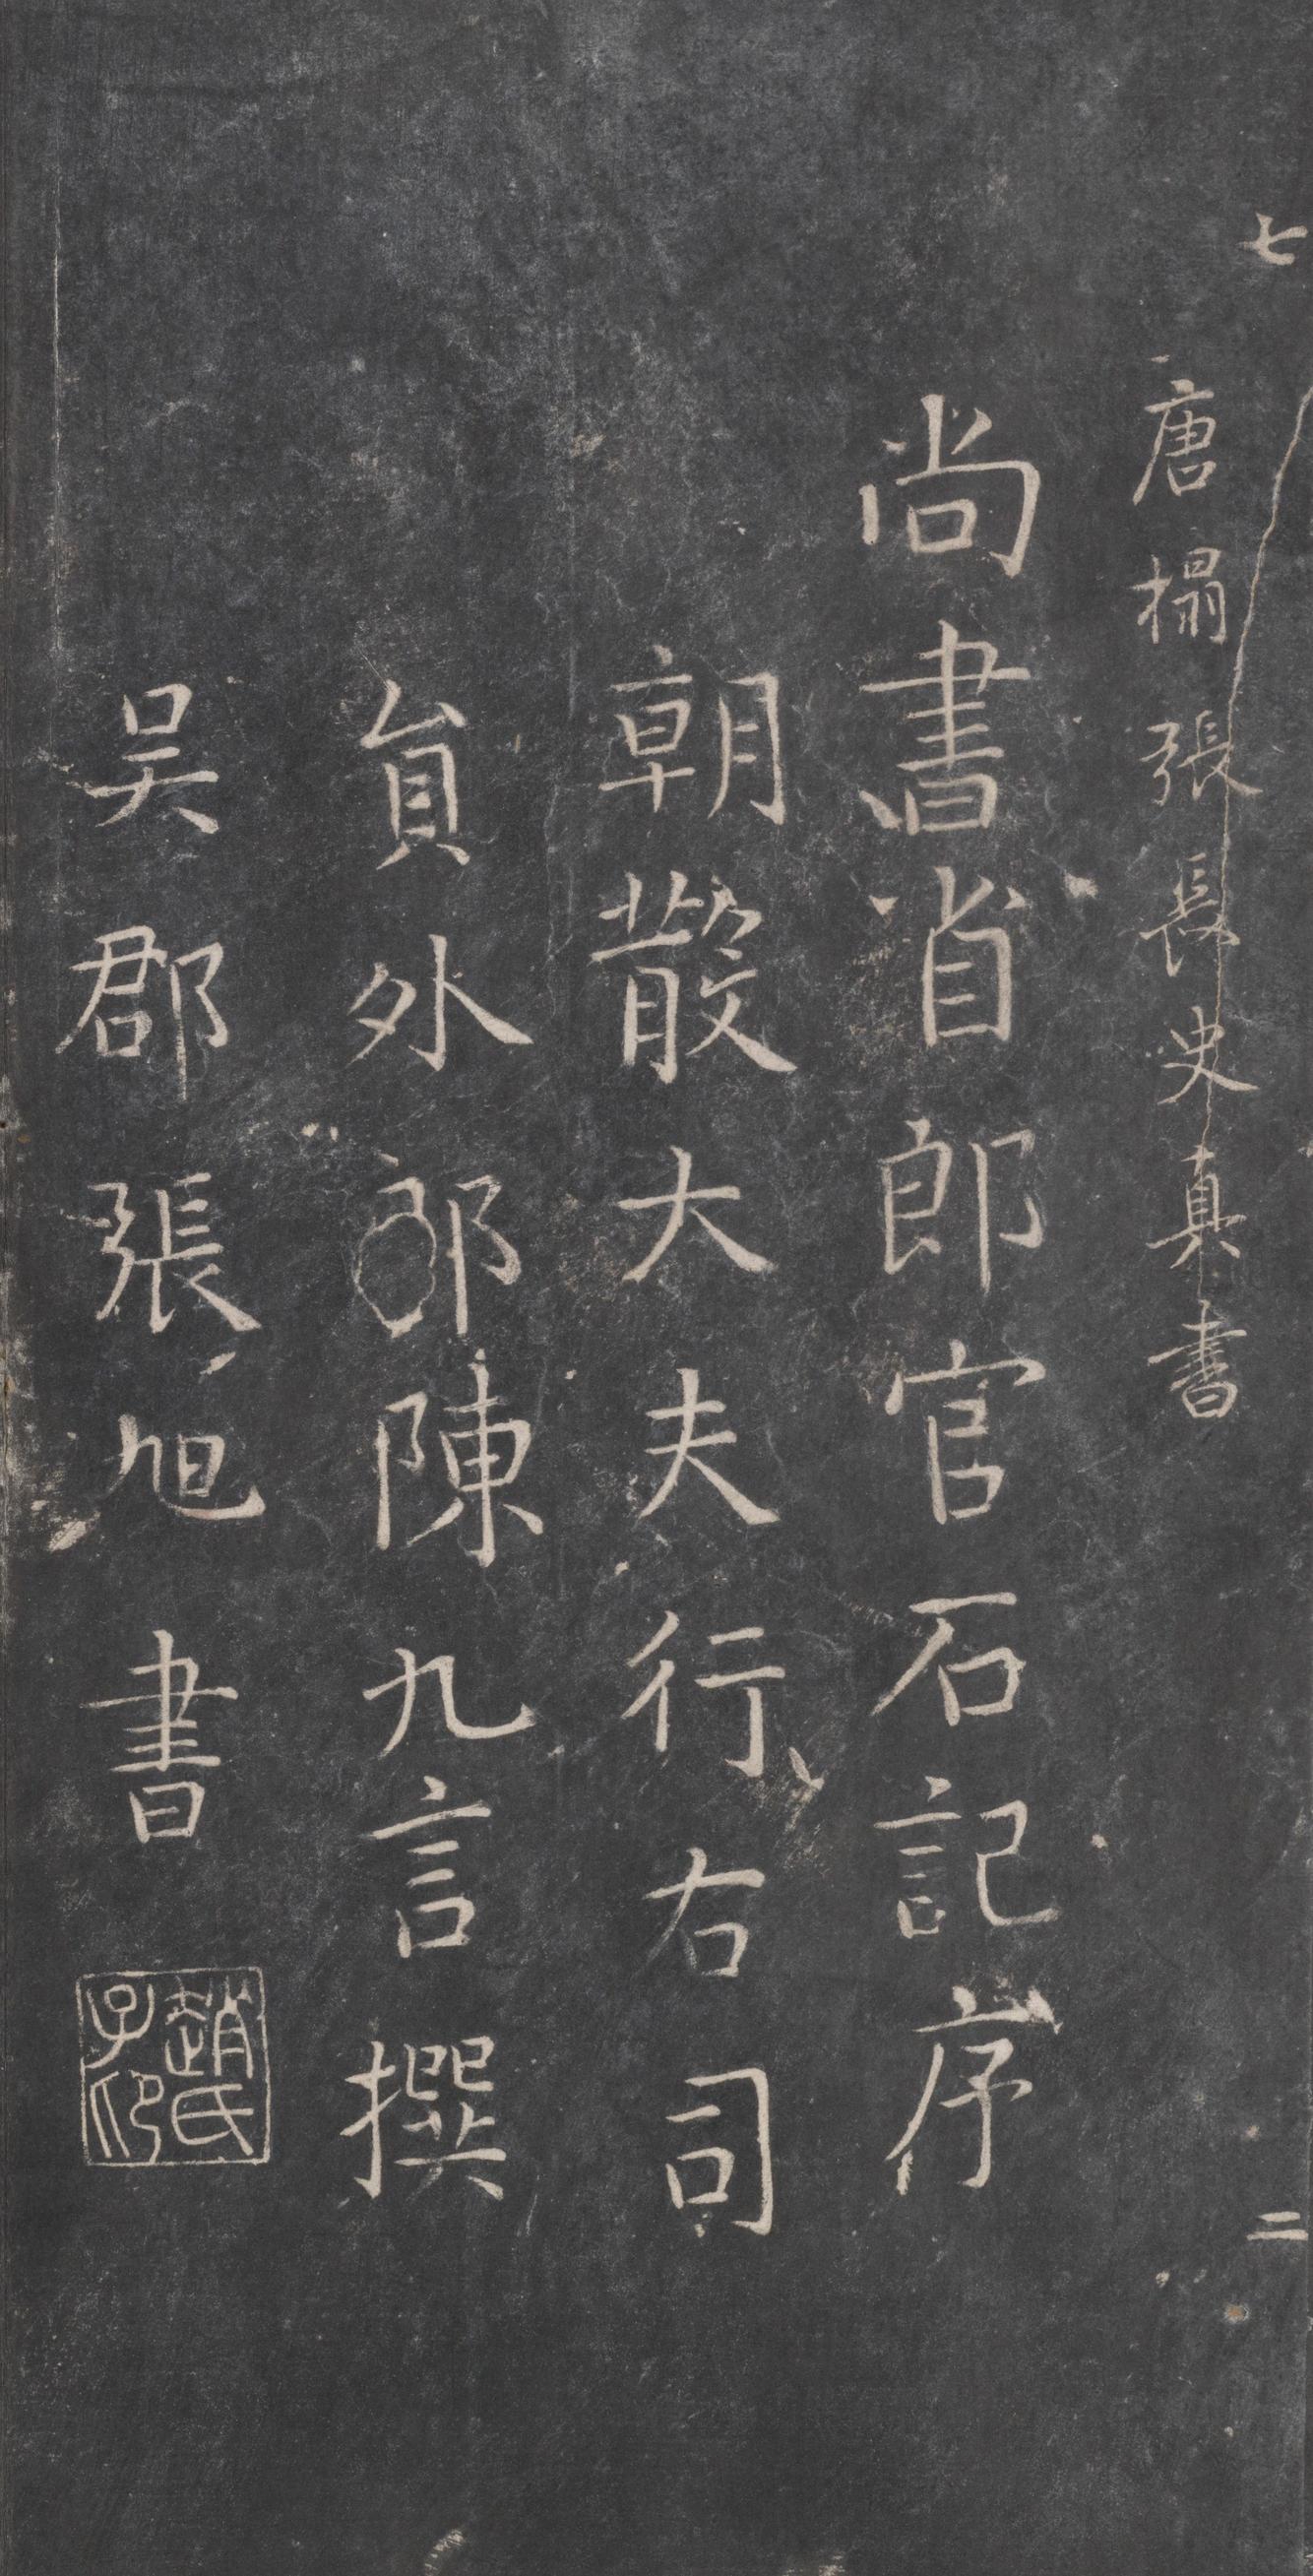 七
二
唐搨張長史真書
尚書省郎官石記序
朝散大夫行右司
貟外郎陳九言撰
吳郡張旭書
趙氏
子印